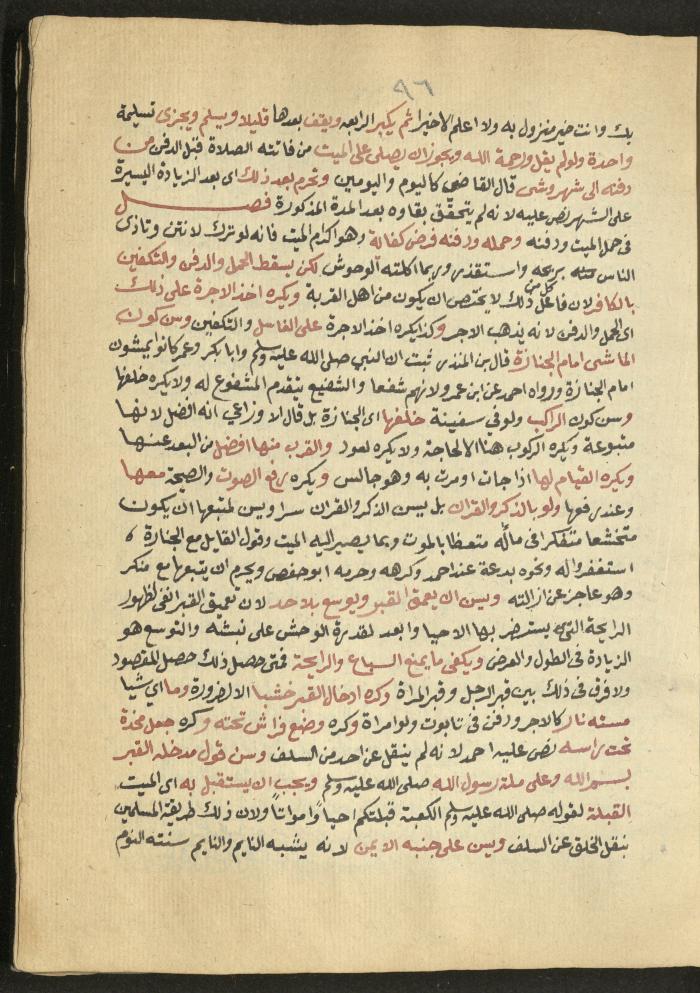 ٩٦
بك وانت خير منزول به ولا اعلم الا خيرا ثم يكبر الرابعه ويقف بعدها قليلا ويسلم ويجزى تسليمة
واحدة ولو لم يقل ورحمة الله ويجوز ان يصلى على الميت من فاتته الصلاة قبل الدفن من
دفنه الى شهر وشى قال القاضى كاليوم واليومين وتحرم بعد ذلك اى بعد الزيادة اليسيرة
على الشهر نص عليه لانه لم يتحقق بقاوه بعد المدة المذكورة فصل
فى حمل الميت ودفنه وحمله ودفنه فرض كفاية وهو اكرام الميت فانه لو ترك لانتن وتاذى
الناس بريحه واستقذر وربما اكلته الوحوش لكن يسقط الحمل والدفن والتكفين
بالكافر لان فاعل كل من ذلك لا يختص ان يكون من اهل القربة ويكره اخذ الاجرة على ذلك
اى الحمل والدفن لانه يذهب الاجر وكذا يكره اخذ الاجرة على الغاسل والتكفين وسن كون
الماشى امام الجنازة قال بن المنذر ثبت ان النبي صلى الله عليه وسلم وابا بكر وعمر كانوا يمشون
امام الجنازة ورواه احمد عن ابن عمر ولانهم شفعا والشفيع يتقدم المشفوع له ولا يكره خلفها
وسن كون الراكب ولو فى سفينة خلفها اى الجنازة بل قال الاوزاعي انه افضل لانها
متبوعة ويكره الركوب هنا الا لحاجة ولا يكره لعود والقرب منها افضل من البعد عنها
ويكره القيام لها اذا جات او مرت به وهو جالس ويكره رفع الصوت والصيحة معها
وعند رفعها ولو بالذكر والقران بل يسن الذكر والقران سرا ويسن لمتبعها ان يكون
متخشعا متفكرا فى مأله متعظا بالموت وبما يصير اليه الميت وقول القايل مع الجنازة
استغفروا له ونحوه بدعة عند احمد وكرهه وحرمه ابو حفص ويحرم ان يتبعها مع منكر
وهو عاجز عن ازالته ويسن ان يعمق القبر ويوسع بلا حد لان تعميق القبر انفى لظهور
الرايحة التي يستضر بها الاحيا وابعد لقدرة الوحش على نبشه والتوسع هو
الزيادة فى الطول والعرض ويكفى ما يمنع السباع والرايحة فمتى حصل ذلك حصل المقصود
ولا فرق فى ذلك بين قبر الرجل وقبر المراة وكره ادخال القبر خشبا الا لضرورة وما اى شيا
مسته نار كالاجر ودفن فى تابوت ولو امراة وكره وضع فراش تحته وكره جعل مخدة
تحت راسه نص عليه احمد لانه لم ينقل عن احد من السلف وسن قول مدخله القبر
بسم الله وعلى ملة رسول الله صلى الله عليه وسلم ويجب ان يستقبل به اى الميت
القبلة لقوله صلى الله عليه وسلم الكعبة قبلتكم احياً وامواتاً ولان ذلك طريقة المسلمين
بنقل الخلق عن السلف ويسن على جنبه الايمن لانه يشبه النايم والنايم سنته النوم